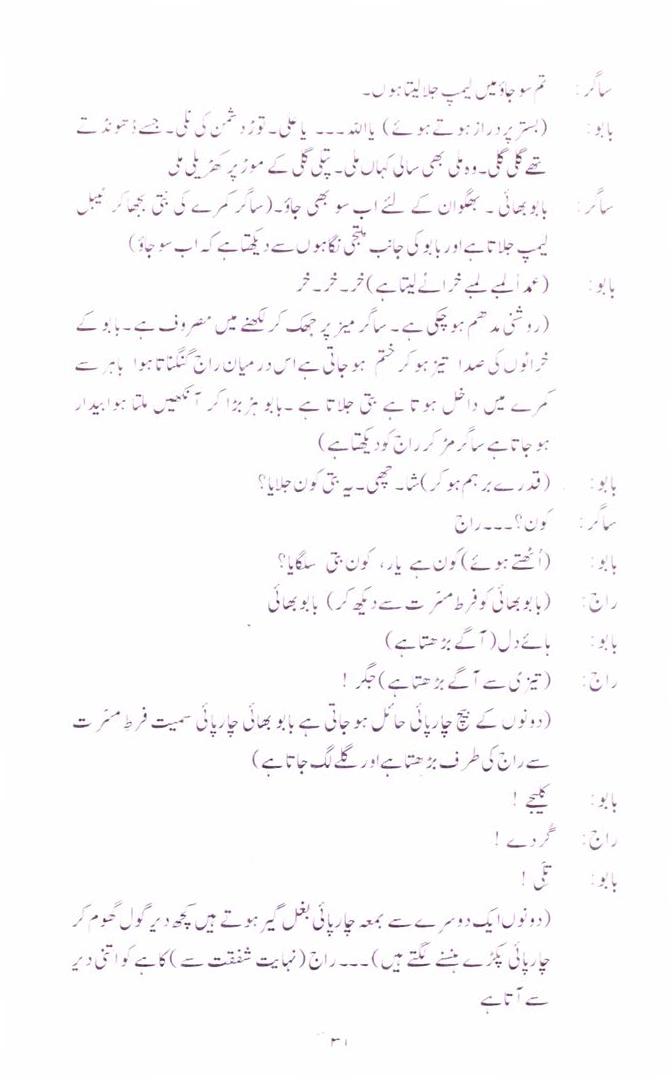 ساگر: تم سو جاؤ میں لیمپ جلا لیتا ہوں۔
بابو: (بستر پر دراز ہوتے ہوئے) یا اللہ۔۔۔ یا علی۔ توڑ دشمن کی نلی۔ جسے ڈھونڈتے
تھے گلی گلی۔ وہ ملی بھی سالی کہاں ملی۔ پتلی گلی کے موڑ پر کھڑیلی ملی
ساگر: بابو بھائی ۔ بھگوان کے لئے اب سو بھی جاؤ۔ (ساگر کمرے کی بتی بجھا کر ٹیبل
لیمپ جلاتا ہے اور بابو کی جانب ملتجی نگاہوں سے دیکھتا ہے کہ اب سو جاؤ)
بابو: (عمداً لمبے لمبے خراٹے لیتا ہے) خر۔ خر۔ خر
(روشنی مدھم ہو چکی ہے۔ ساگر میز پر جھک کر لکھنے میں مصروف ہے۔ بابو کے
خراٹوں کی صدا تیز ہو کر ختم ہو جاتی ہے اس درمیان راج گنگناتا ہوا باہر سے
کمرے میں داخل ہوتا ہے بتی جلاتا ہے ۔ بابو ہڑبڑا کر آنکھیں ملتا ہوا بیدار
ہو جاتا ہے ساگر مڑ کر راج کو دیکھتا ہے)
بابو: (قدرے برہم ہو کر) شا۔ چھی۔ یہ بتی کون جلایا؟
ساگر: کون؟۔۔۔ راج
بابو: (اُٹھتے ہوئے) کون ہے یار، کون بتی سلگایا؟
راج: (بابو بھائی کو فرط مسّرت سے دیکھ کر) بابو بھائی
بابو: ہائے دل (آگے بڑھتا ہے)
راج: (تیزی سے آگے بڑھتا ہے) جگر !
(دونوں کے بیچ چارپائی حائل ہو جاتی ہے بابو بھائی چارپائی سمیت فرطِ مسّرت
سے راج کی طرف بڑھتا ہے اور گلے لگ جاتا ہے)
بابو: کلیجے !
راج: گُردے !
بابو: تلّی !
(دونوں ایک دوسرے سے بمعہ چارپائی بغل گیر ہوتے ہیں کچھ دیر گول گھوم کر
چارپائی پکڑے ہنسنے لگتے ہیں)۔۔۔ راج (نہایت شفقت سے) کاہے کو اتنی دیر
سے آتا ہے
۳۱